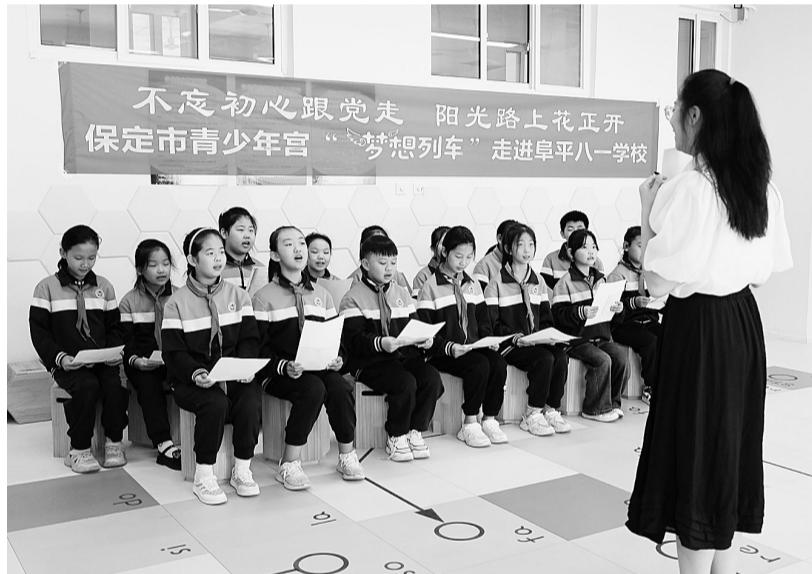 不忘初心跟党走 阳光路上花正开
保定市青少年宫“梦想列车”走进阜平八一学校
do
si
la
fa
so